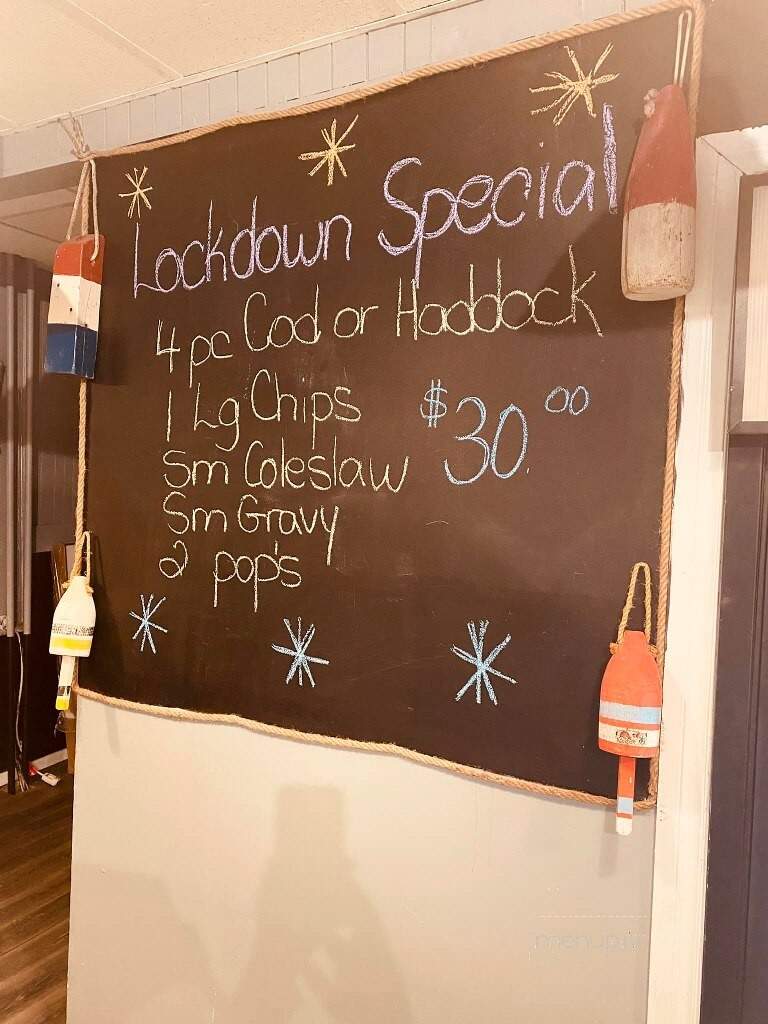 Lockdown Special
4 pc Cod or Haddock
1 Lg Chips
$30.00
Sm Coleslaw
Sm Gravy
2 pop's